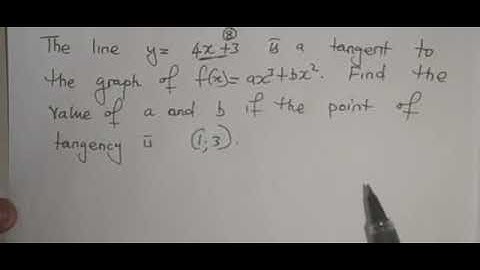 ⑧
The line y= 4x+3 is a tangent to
the graph of f(x)= ax³+bx². Find the
value of a and b if the point of
tangency is (1;3).